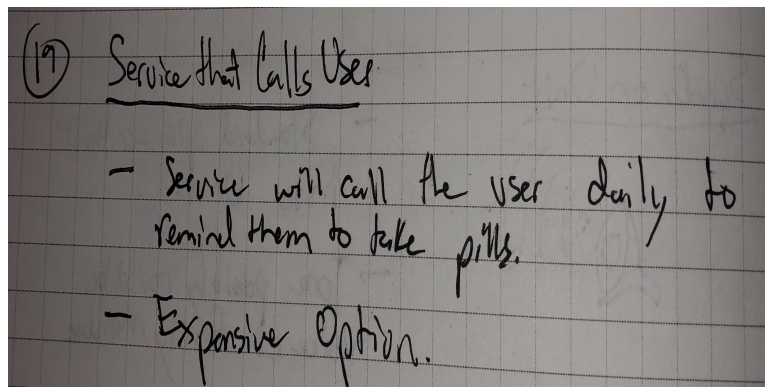 19 Service that Calls User
- Service will call the user daily to
remind them to take pills.
- Expansive Option.